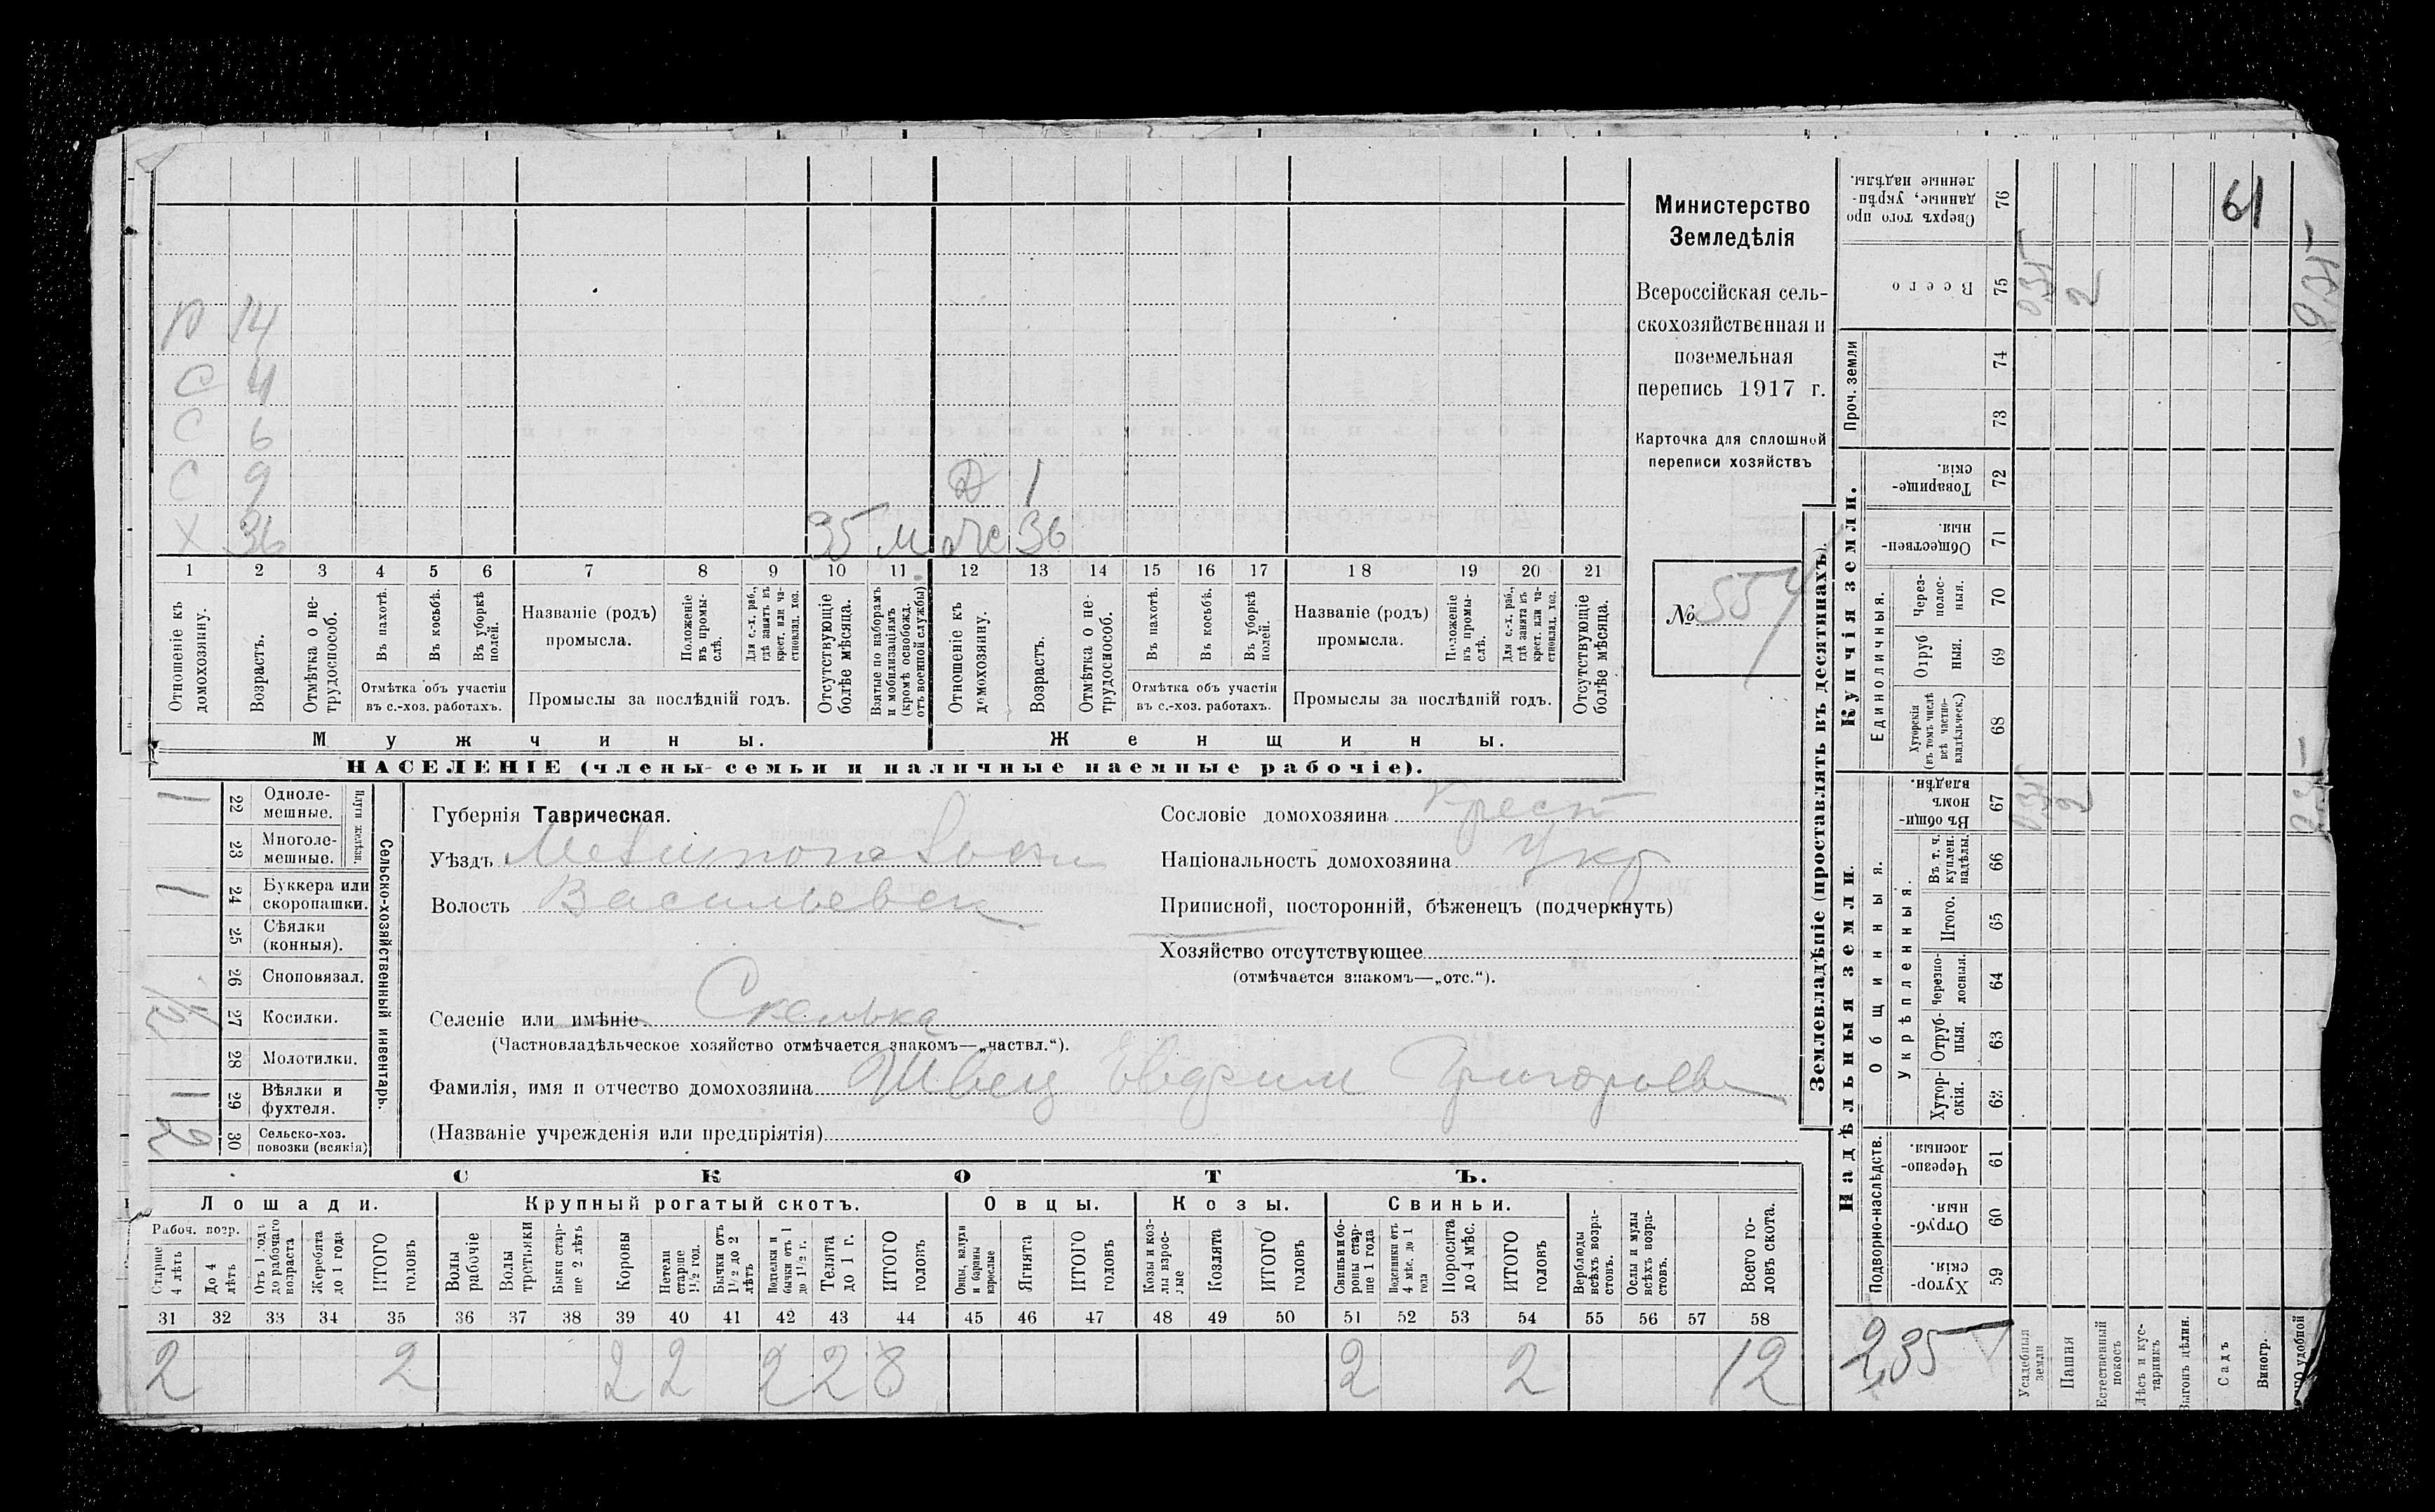 р 14
С 4
С 6
С 9 Д 1
Х 36 35 м Же 36
1 2 3 4 5 6 7 8 9 10 11 12 13 14 15 16 17 18 19 20 21
Отношеніе къ домохозяину.
Возрастъ.
Отмѣтка о не-
трудоспособ.
Въ пахотѣ.
Въ косьбѣ.
Въ уборкѣ
полей.
Отмѣтка объ участіи
въ с.-хоз. работахъ.
Названіе (родъ)
промысла.
Положеніе
въ промы-
слѣ.
Для с.-х. раб.,
гдѣ занятъ въ
крест. или ча-
стновлад. хоз.
Промыслы за послѣдній годъ.
Отсутствующіе
болѣе мѣсяца.
Взятые по наборамъ
и мобилизаціямъ
(кромѣ освобожд.
отъ военной службы)
Отношеніе къ
домохозяину.
Возрастъ.
Отмѣтка о не-
трудоспособ.
Въ пахотѣ.
Въ косьбѣ.
Въ уборкѣ
полей.
Отмѣтка объ участіи
въ с.-хоз. работахъ.
Названіе (родъ)
промысла.
Положеніе
въ промы-
слѣ.
Для с.-х. раб.,
гдѣ занята въ
крест. или ча-
стновлад. хоз.
Промыслы за послѣдній годъ.
Отсутствующіе
болѣе мѣсяца.
Мужчины.
Женщины.
НАСЕЛЕНІЕ (члены семьи и наличные наемные рабочіе).
Министерство
Земледѣлія
Всероссійская сель-
скохозяйственная и
поземельная
перепись 1917 г.
Карточка для сплошной
переписи хозяйствъ
№ 557
1 22 Одноле-
мешные.
23 Многоле-
мешные.
Плуги желѣзн.
1 24 Буккера или
скоропашки.
25 Сѣялки
(конныя).
26 Сноповязал.
27 Косилки.
28 Молотилки.
1 29 Вѣялки и
фухтеля.
2 30 Сельско-хоз.
повозки (всякія)
Сельско-хозяйственный инвентарь.
Губернія Таврическая.
Уѣздъ Мелитопольскъ
Волость Васильевск
Селеніе или имѣніе Скелька
(Частновладѣльческое хозяйство отмѣчается знакомъ—„частвл.“).
Фамилія, имя и отчество домохозяина Швец Евфим Григорьев
(Названіе учрежденія или предпріятія)
Сословіе домохозяина крест
Національность домохозяина Укр
Приписной, посторонній, бѣженецъ (подчеркнуть)
Хозяйство отсутствующее
(отмѣчается знакомъ—„отс.“).
СКОТЪ.
Лошади. Крупный рогатый скотъ. Овцы. Козы. Свиньи.
Рабоч. возр.
Старше
4 лѣтъ
До 4
лѣтъ
Отъ 1 года
до рабочаго
возраста
Жеребята
до 1 года
ИТОГО
головъ
Волы
рабочіе
Волы
третьяки
Быки стар-
ше 2 лѣтъ
Коровы
Нетели
старше
1½ год.
Бычки отъ
1½ до 2
лѣтъ
Подтелки и
бычки отъ 1
до 1½ г.
Телята
до 1 г.
ИТОГО
головъ
Овцы, валухи
и бараны
взрослые
Ягнята
ИТОГО
головъ
Козы и коз-
лы взрос-
лые
Козлята
ИТОГО
головъ
Свиньи и бо-
ровы стар-
ше 1 года
Подсвинки отъ
4 мѣс. до 1
года
Поросята
до 4 мѣс.
ИТОГО
головъ
Верблюды
всѣхъ возра-
стовъ.
Ослы и мулы
всѣхъ возра-
стовъ.
Всего го-
ловъ скота.
31 32 33 34 35 36 37 38 39 40 41 42 43 44 45 46 47 48 49 50 51 52 53 54 55 56 57 58
2 2 2 2 2 2 8 2 2 12
Землевладѣніе (проставлять въ десятинахъ).
Надѣльныя земли.
Купчія земли.
Проч. земли
Подворно-наслѣдств.
Общинныя.
Укрѣпленныя.
Единоличныя.
Сверхъ того про
данные, укрѣп-
ленные надѣлы.
76
61
Всего
75
035
2
74
73
Товарище-
скія.
72
Обществен-
ныя.
71
Через-
полос-
ныя.
70
Отруб
ныя.
69
Хуторскія
(въ томъ числѣ
всѣ частно-
владѣльческ.)
68
Въ общи-
номъ
владѣн.
67
035
2
Въ т. ч.
куплен.
надѣлы.
66
Итого.
65
Черезпо-
лосныя.
64
Отруб-
ныя.
63
Хутор-
скія.
62
Черезпо-
лосныя.
61
Отруб-
ныя.
60
Хутор-
скія.
59
2,35
Усадебныя
земли
Пашня
Естественный
покосъ
Лѣсъ и кус-
тарникъ
Выгонъ цѣлин.
Садъ
Виногр.
удобной